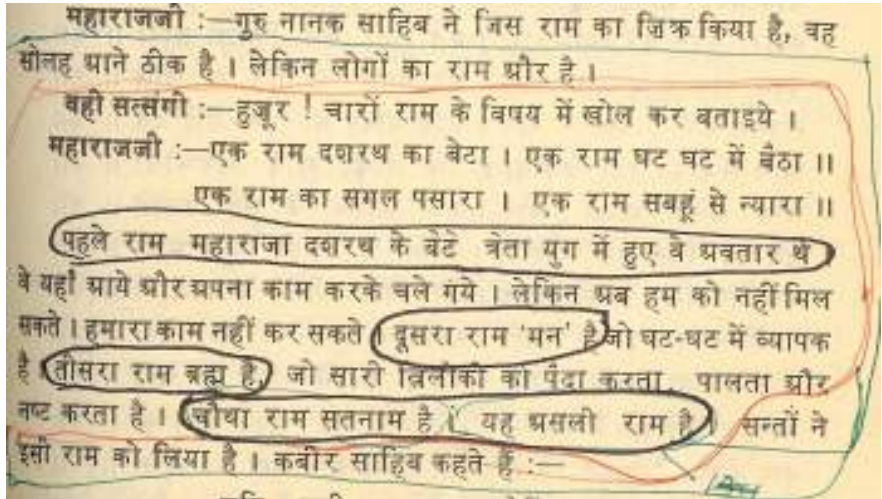 महाराजजी :—गुरु नानक साहिब ने जिस राम का ज़िक्र किया है, वह
सोलह आने ठीक है । लेकिन लोगों का राम और है ।
वही सत्संगी :—हुज़ूर ! चारों राम के विषय में खोल कर बताइये ।
महाराजजी :—एक राम दशरथ का बेटा । एक राम घट घट में बैठा ॥
एक राम का सगल पसारा । एक राम सबहूं से न्यारा ॥
पहले राम महाराजा दशरथ के बेटे त्रेता युग में हुए वे अवतार थे
वे यहाँ आये और अपना काम करके चले गये । लेकिन अब हम को नहीं मिल
सकते । हमारा काम नहीं कर सकते । दूसरा राम 'मन' है जो घट-घट में व्यापक
है । तीसरा राम ब्रह्म है, जो सारी त्रिलोकी को पैदा करता, पालता और
नष्ट करता है । चौथा राम सतनाम है । यह असली राम है । सन्तों ने
इसी राम को लिया है । कबीर साहिब कहते हैं :—